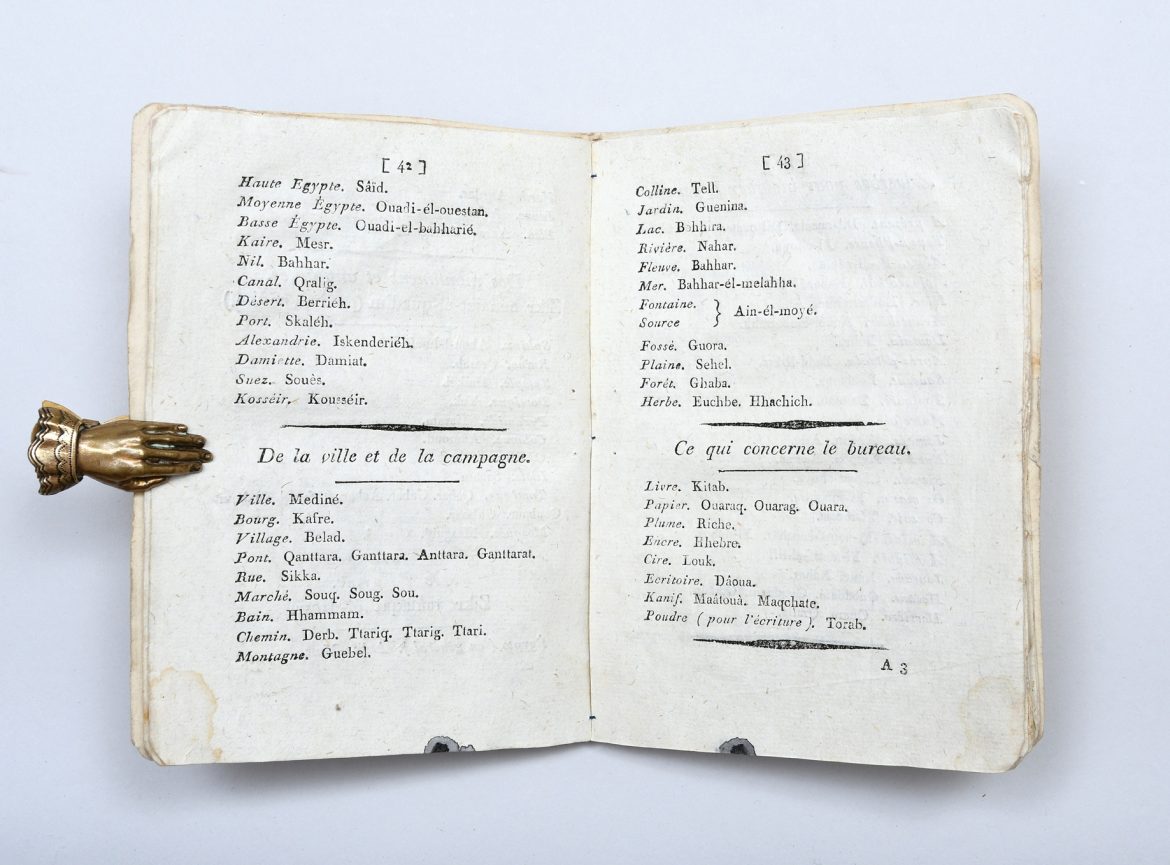 [ 42 ]
Haute Egypte. Sâïd.
Moyenne Égypte. Ouadi-él-ouestan.
Basse Égypte. Ouadi-el-bahharié.
Kaire. Mesr.
Nil. Bahhar.
Canal. Qralig.
Désert. Berriéh.
Port. Skaléh.
Alexandrie. Iskenderiéh.
Damiette. Damiat.
Suez. Souès.
Kosséir. Kousséir.
De la ville et de la campagne.
Ville. Mediné.
Bourg. Kafre.
Village. Belad.
Pont. Qanttara. Ganttara. Anttara. Ganttarat.
Rue. Sikka.
Marché. Souq. Soug. Sou.
Bain. Hhammam.
Chemin. Derb. Ttariq. Ttarig. Ttari.
Montagne. Guebel.
[ 43 ]
Colline. Tell.
Jardin. Guenina.
Lac. Bahhira.
Rivière. Nahar.
Fleuve. Bahhar.
Mer. Bahhar-él-melahha.
Fontaine. } Ain-él-moyé.
Source
Fossé. Guora.
Plaine. Sehel.
Forêt. Ghaba.
Herbe. Euchbe. Hhachich.
Ce qui concerne le bureau.
Livre. Kitab.
Papier. Ouaraq. Ouarag. Ouara.
Plume. Riche.
Encre. Hhebre.
Cire. Louk.
Ecritoire. Dâoua.
Kanif. Maâtouà. Maqchate.
Poudre ( pour l'écriture ). Torab.
A 3